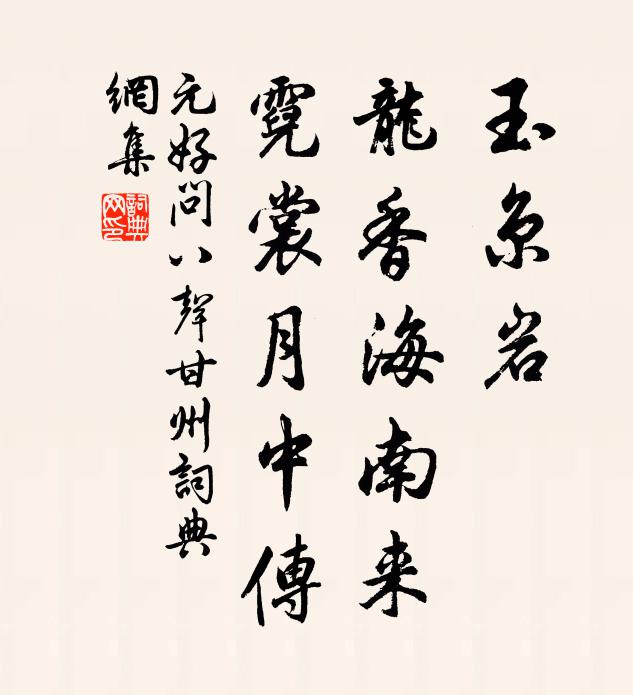 玉京岩
龍香海南来
霓裳月中傳
元好問八聲甘州詞典
網集
詞典
网印